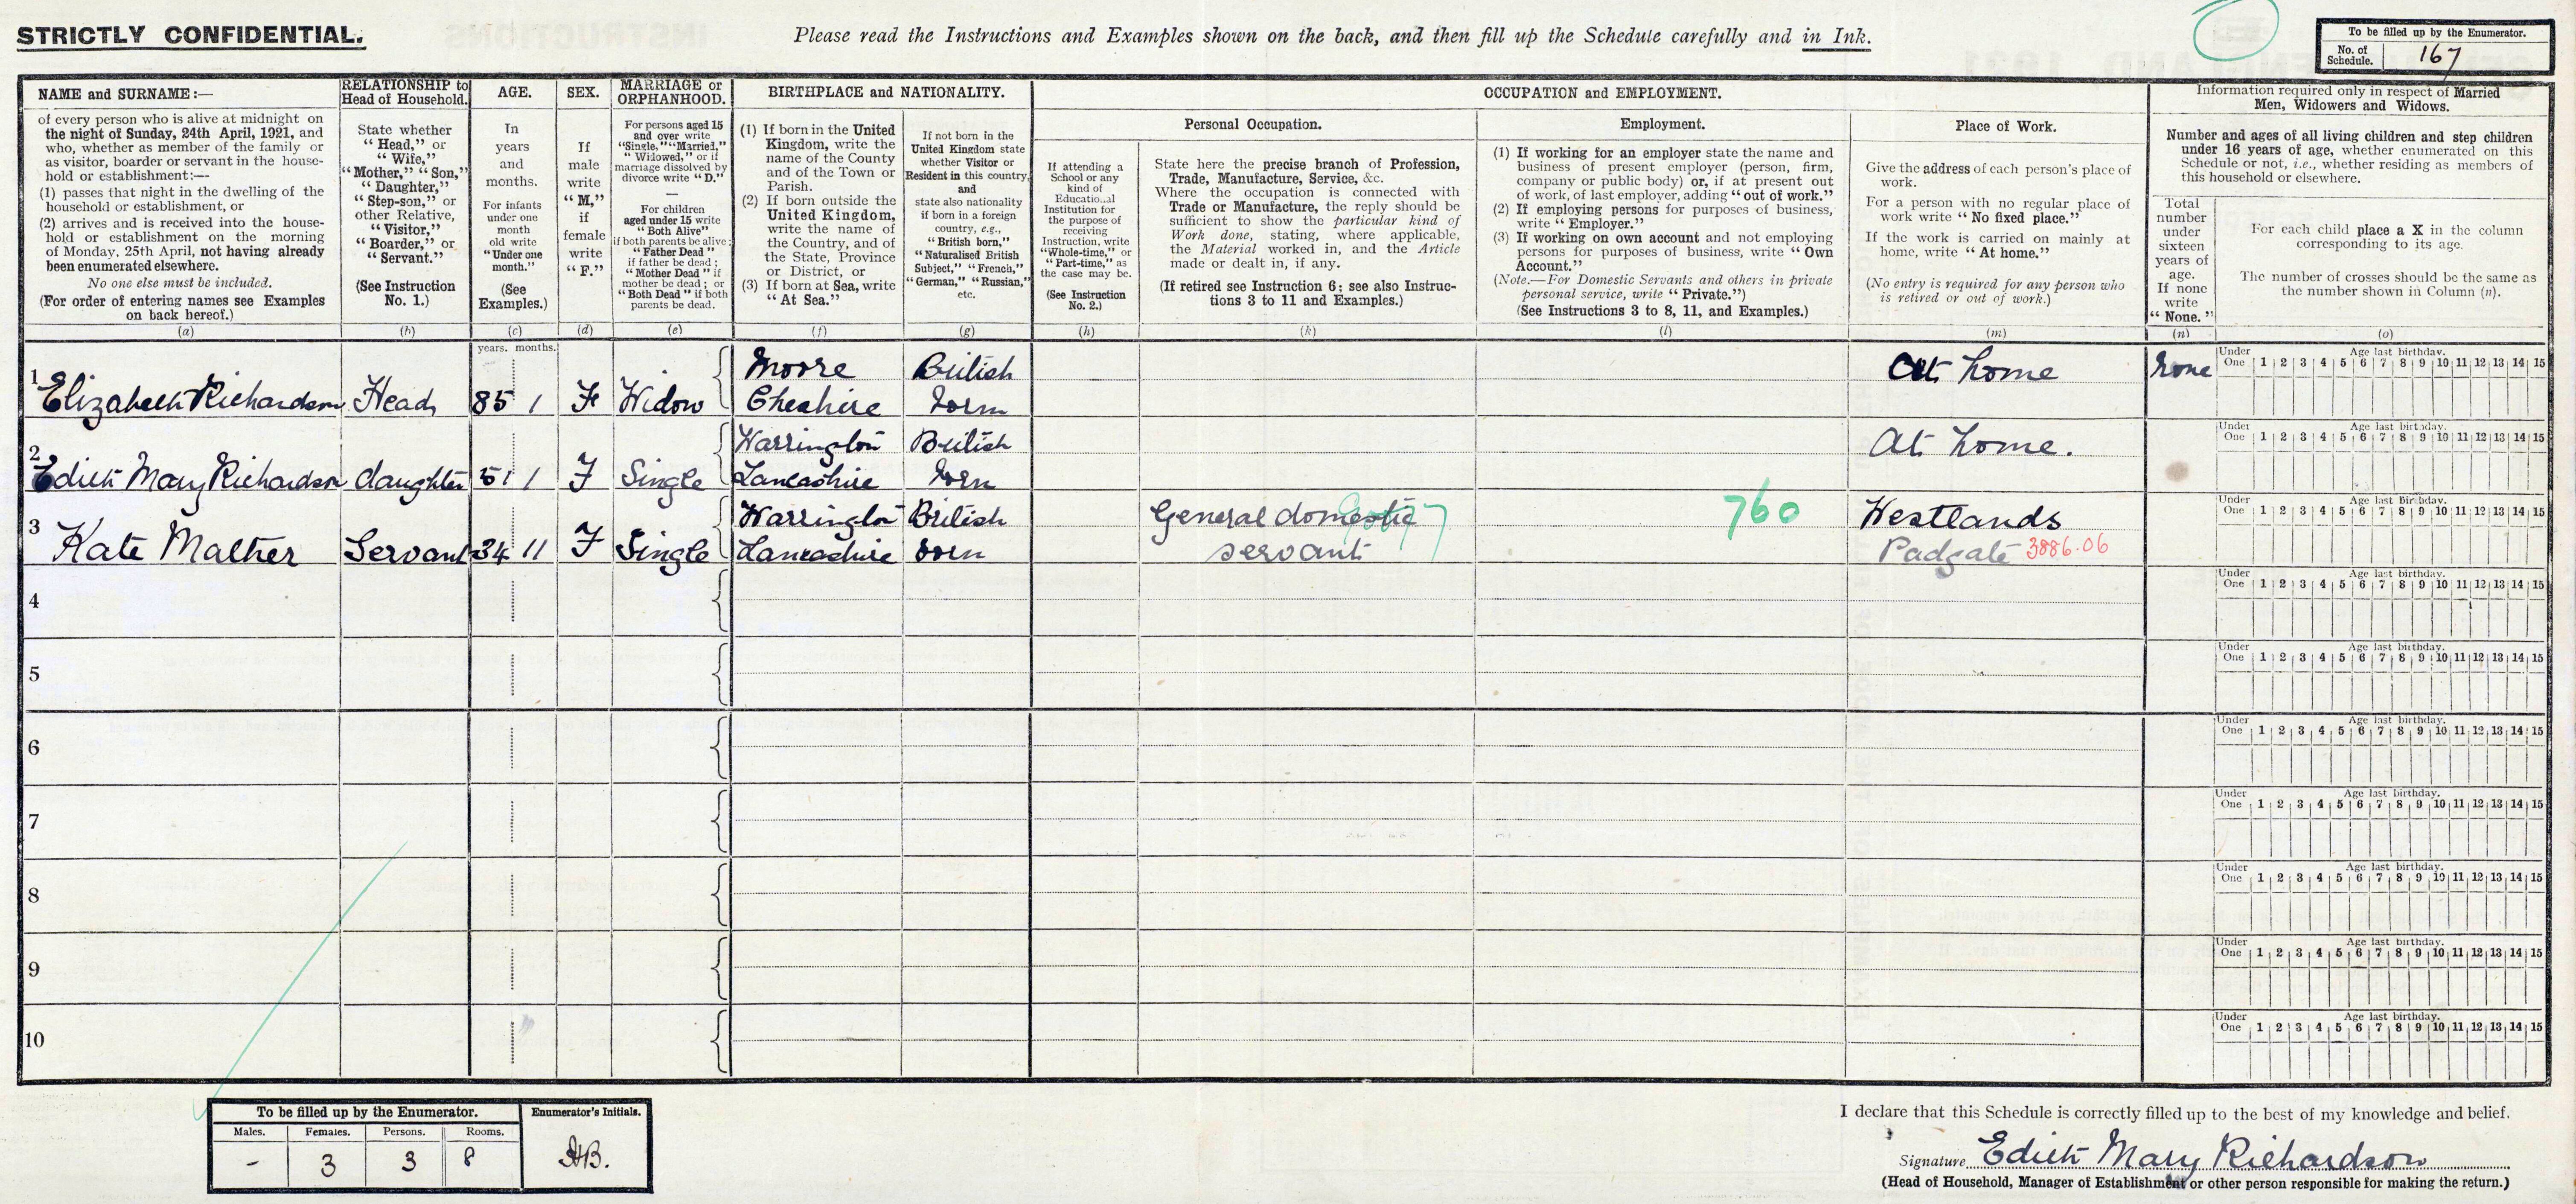 STRICTLY CONFIDENTIAL.
Please read the Instructions and Examples shown on the back, and then fill up the Schedule carefully and in Ink.
To be filled up by the Enumerator.
No. of Schedule. 167
NAME and SURNAME :—
of every person who is alive at midnight on
the night of Sunday, 24th April, 1921, and
who, whether as member of the family or
as visitor, boarder or servant in the house-
hold or establishment:—
(1) passes that night in the dwelling of the
household or establishment, or
(2) arrives and is received into the house-
hold or establishment on the morning
of Monday, 25th April, not having already
been enumerated elsewhere.
No one else must be included.
(For order of entering names see Examples
on back hereof.)
(a)
RELATIONSHIP to
Head of Household.
State whether
“Head,” or
“Wife,”
“Mother,” “Son,”
“Daughter,”
“Step-son,” or
other Relative,
“Visitor,”
“Boarder,” or
“Servant.”
(See Instruction
No. 1.)
(b)
AGE.
In
years
and
months.
For infants
under one
month
old write
“Under one
month.”
(See
Examples.)
(c)
SEX.
If
male
write
“M,”
if
female
write
“F.”
(d)
MARRIAGE or
ORPHANHOOD.
For persons aged 15
and over write
“Single,” “Married,”
“Widowed,” or if
marriage dissolved by
divorce write “D.”
—
For children
aged under 15 write
“Both Alive”
if both parents be alive;
“Father Dead”
if father be dead;
“Mother Dead” if
mother be dead; or
“Both Dead” if both
parents be dead.
(e)
BIRTHPLACE and NATIONALITY.
(1) If born in the United
Kingdom, write the
name of the County
and of the Town or
Parish.
(2) If born outside the
United Kingdom,
write the name of
the Country, and of
the State, Province
or District, or
(3) If born at Sea, write
“At Sea.”
(f)
If not born in the
United Kingdom state
whether Visitor or
Resident in this country,
and
state also nationality
if born in a foreign
country, e.g.,
“British born,”
“Naturalised British
Subject,” “French,”
“German,” “Russian,”
etc.
(g)
OCCUPATION and EMPLOYMENT.
If attending a
School or any
kind of
Educational
Institution for
the purpose of
receiving
Instruction, write
“Whole-time,” or
“Part-time,” as
the case may be.
(See Instruction
No. 2.)
(h)
Personal Occupation.
State here the precise branch of Profession,
Trade, Manufacture, Service, &c.
Where the occupation is connected with
Trade or Manufacture, the reply should be
sufficient to show the particular kind of
Work done, stating, where applicable,
the Material worked in, and the Article
made or dealt in, if any.
(If retired see Instruction 6; see also Instruc-
tions 3 to 11 and Examples.)
(k)
Employment.
(1) If working for an employer state the name and
business of present employer (person, firm,
company or public body) or, if at present out
of work, of last employer, adding “out of work.”
(2) If employing persons for purposes of business,
write “Employer.”
(3) If working on own account and not employing
persons for purposes of business, write “Own
Account.”
(Note.—For Domestic Servants and others in private
personal service, write “Private.”)
(See Instructions 3 to 8, 11, and Examples.)
(l)
Place of Work.
Give the address of each person's place of
work.
For a person with no regular place of
work write “No fixed place.”
If the work is carried on mainly at
home, write “At home.”
(No entry is required for any person who
is retired or out of work.)
(m)
Information required only in respect of Married
Men, Widowers and Widows.
Number and ages of all living children and step children
under 16 years of age, whether enumerated on this
Schedule or not, i.e., whether residing as members of
this household or elsewhere.
Total
number
under
sixteen
years of
age.
If none
write
“None.”
(n)
For each child place a X in the column
corresponding to its age.
The number of crosses should be the same as
the number shown in Column (n).
(o)
years. months.
1 Elizabeth Richardson Head 85 1 F Widow Moore Cheshire British born At home None
Under One Age last birthday. 1 2 3 4 5 6 7 8 9 10 11 12 13 14 15
2 Edith Mary Richardson daughter 51 1 F Single Warrington Lancashire British born At home.
Under One Age last birthday. 1 2 3 4 5 6 7 8 9 10 11 12 13 14 15
3 Kate Mather Servant 34 11 F Single Warrington Lancashire British born General domestic servant 760 Westlands Padgate 3886.06
Under One Age last birthday. 1 2 3 4 5 6 7 8 9 10 11 12 13 14 15
4
Under One Age last birthday. 1 2 3 4 5 6 7 8 9 10 11 12 13 14 15
5
Under One Age last birthday. 1 2 3 4 5 6 7 8 9 10 11 12 13 14 15
6
Under One Age last birthday. 1 2 3 4 5 6 7 8 9 10 11 12 13 14 15
7
Under One Age last birthday. 1 2 3 4 5 6 7 8 9 10 11 12 13 14 15
8
Under One Age last birthday. 1 2 3 4 5 6 7 8 9 10 11 12 13 14 15
9
Under One Age last birthday. 1 2 3 4 5 6 7 8 9 10 11 12 13 14 15
10
Under One Age last birthday. 1 2 3 4 5 6 7 8 9 10 11 12 13 14 15
To be filled up by the Enumerator.
Males. Females. Persons. Rooms.
- 3 3 8
Enumerator's Initials.
I declare that this Schedule is correctly filled up to the best of my knowledge and belief.
Signature Edith Mary Richardson
(Head of Household, Manager of Establishment or other person responsible for making the return.)